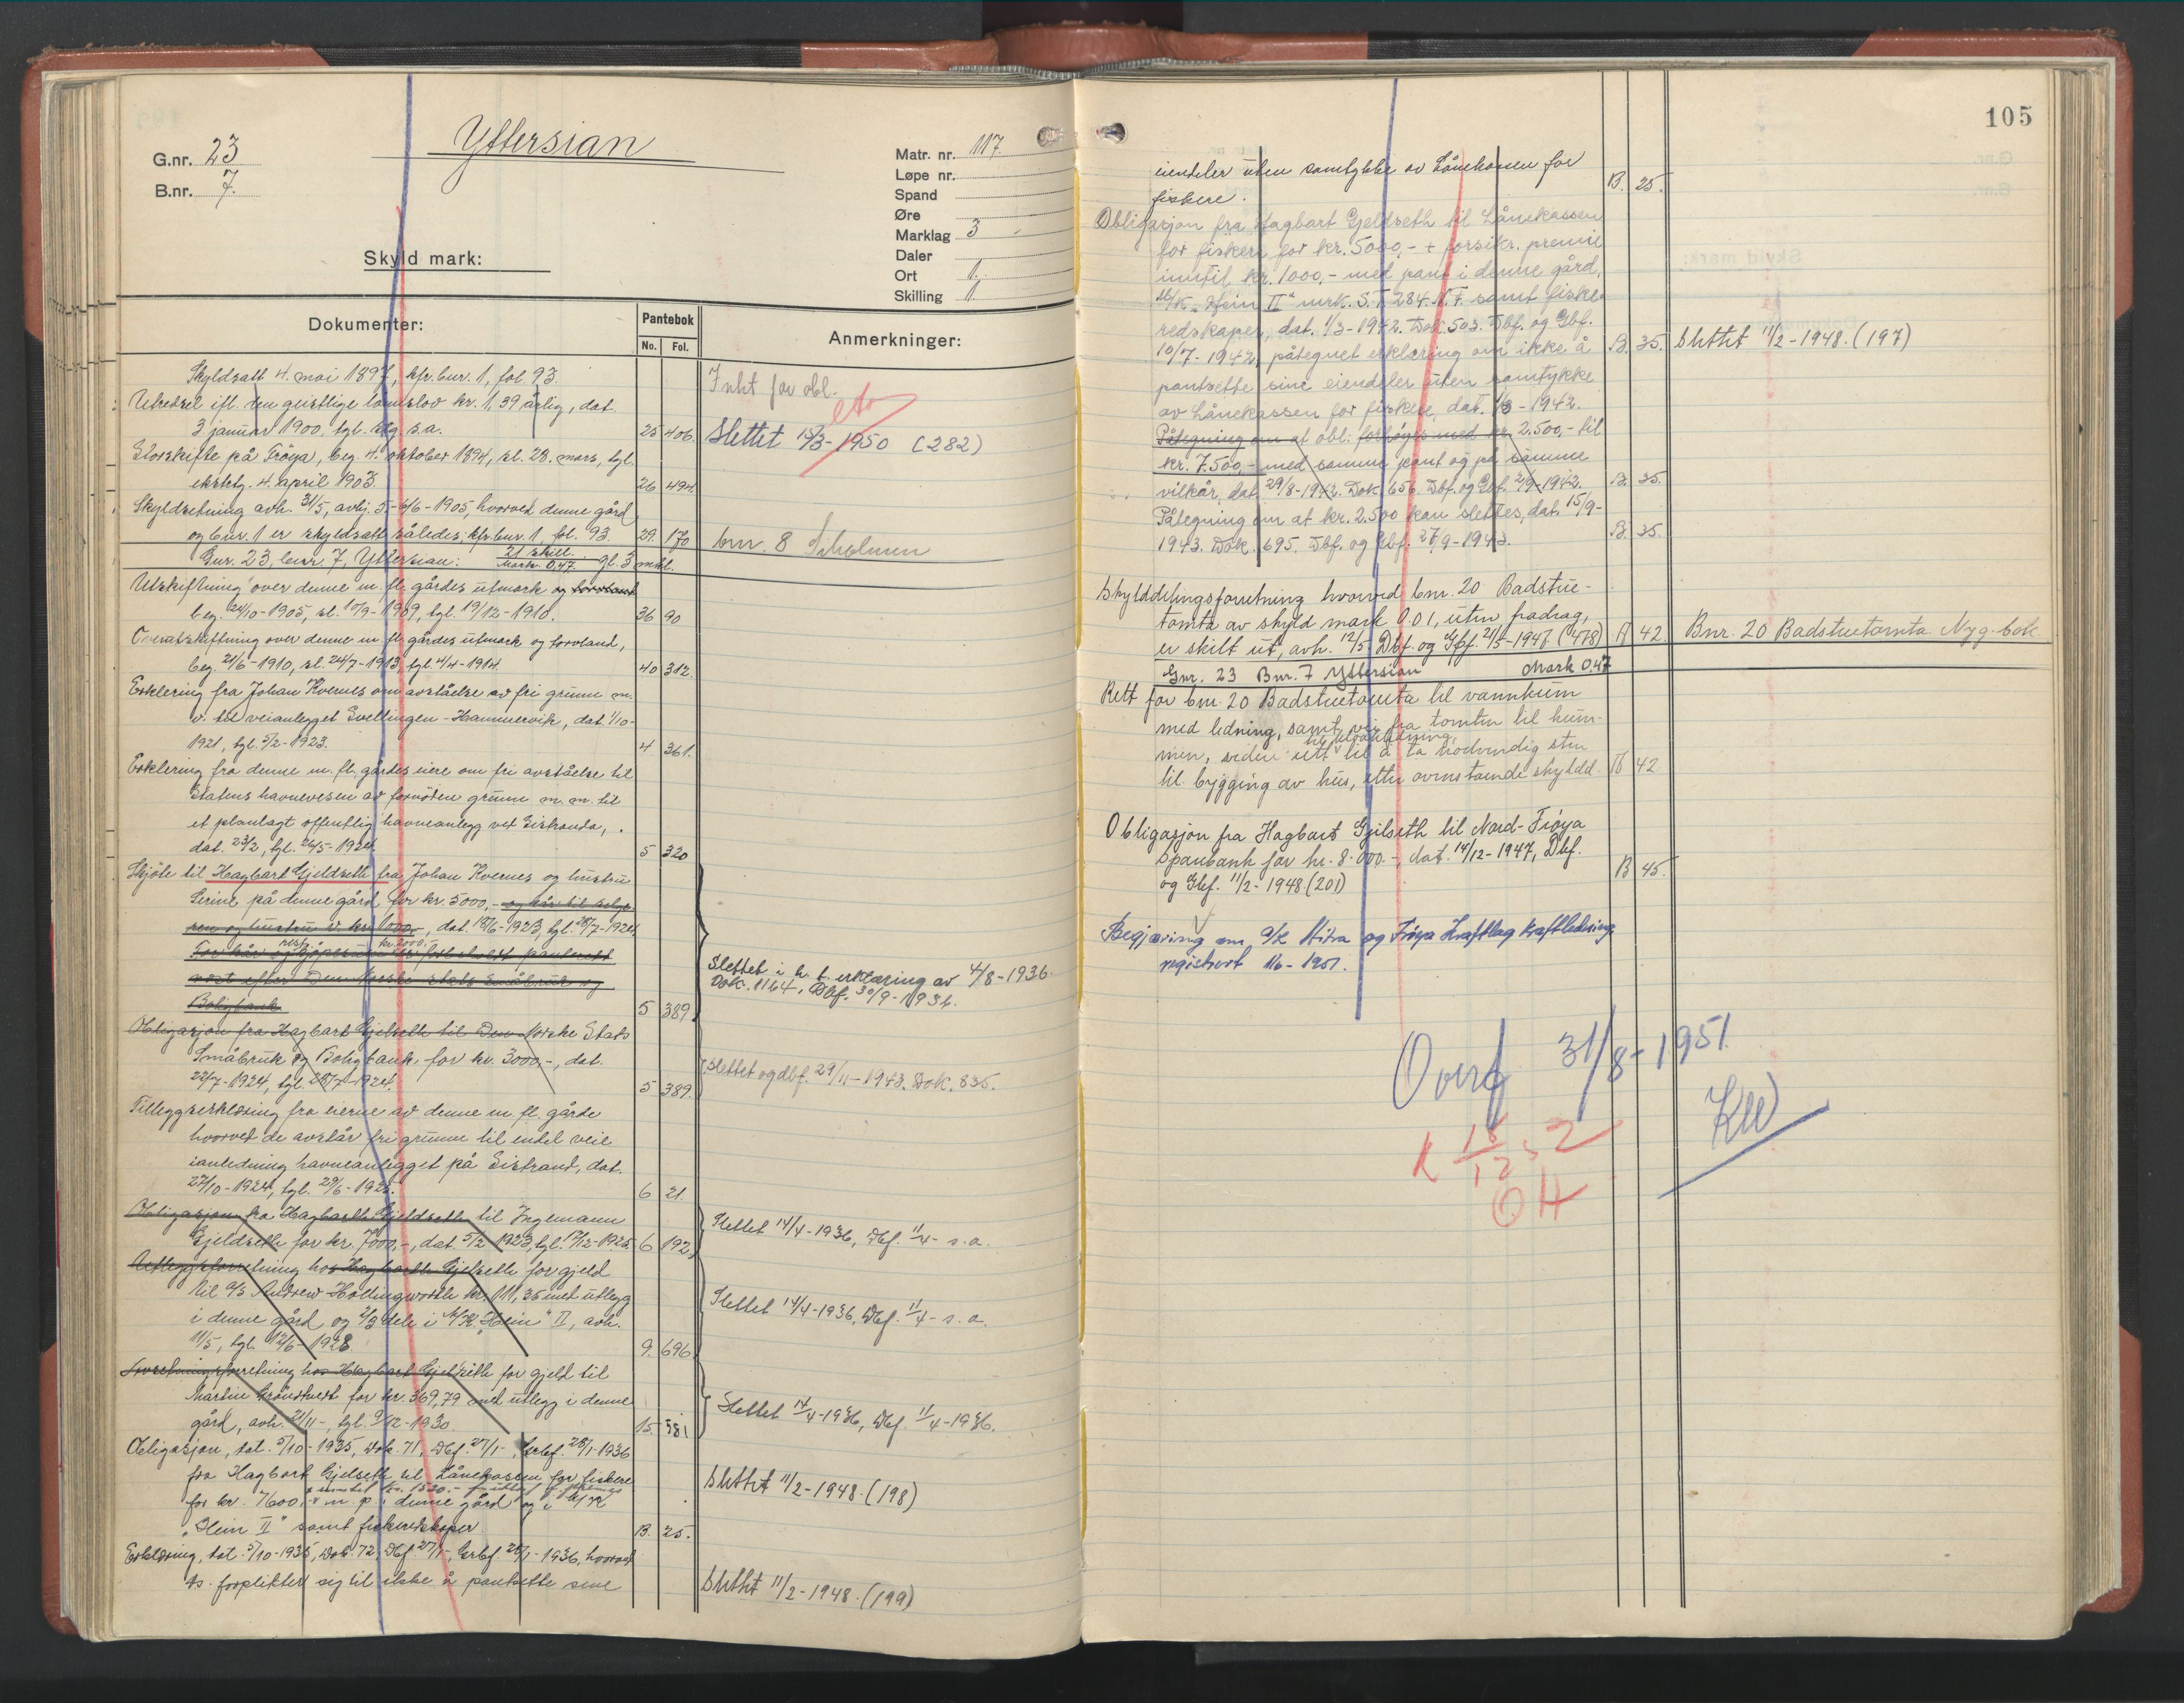 105
G.nr. 23
B.nr. 7.
Yttersian
Matr. nr. 117.
Løpe nr.
Spand
Øre
Marklag 3
Daler
Ort 1.
Skilling 1
Skyld mark:
Dokumenter:
Pantebok
No. Fol.
Anmerkninger:
Skyldsatt 4. mai 1897, kfr. bnr. 1, fol. 93
Utredsel ifl. den geistlige lønnslov kr. 1,39 årlig, dat.
3 januar 1900, tgl. s.a. 25 406.
Inkt for obl.
Slettet 15/3-1950 (282)
Storskifte på Frøya, beg. 4. oktober 1894, sl. 28. mars, tgl.
ekstrtg. 4. april 1903. 26 494.
Skyldsetning avh. 31/5, avhj. 5-6/6-1905, hvorved denne gård
og bnr. 1 er skyldsatt således: kfr. bnr. 1, fol. 93. 29. 170
bnr. 8 Siholmen
Gnr. 23, bnr 7, Yttersian: 21 skill. Mark 0,47. gl. 3 mkl.
Utskiftning over denne m. fl. gårdes utmark og torvland
beg. 24/10-1905, sl. 10/9-1909, tgl. 19/12-1910. 36 90
Overutskiftning over denne m. fl. gårdes utmark og torvland,
beg. 21/6-1910, sl. 24/7-1913, tgl. 4/4-1914. 40 312.
Erklering fra Johan Kvernes om avståelse av fri grunn m.
v. til veianlegget Svellingen-Hammervik, dat 1/10-
1921, tgl. 5/2-1923. 4 361.
Erklering fra denne m. fl. gårdes eiere om fri avståelse til
Statens havnevesen av fornöden grunn m. m. til
et planlagt offentlig havneanlegg ved Sistranda,
dat. 23/2, tgl. 26/5-1924. 5 320
Skjöte til Hagbart Gjeldseth fra Johan Kvernes og hustru
Serine på denne gård for kr. 5000,- og kår til selge-
ren og hustru v. kr. 1000,-, dat. 18/6-1923, tgl. 28/7-1924.
For kår og rest kjöpesum kr. 2000,- er forbeholdt panterett
næst efter Den Norske Stats Småbruk og
Boligbank 5 389
Slettet i h. t. erklæring av 4/8-1936.
Dok. 1164, Dbf. 30/9-1936.
Obligasjon fra Hagbart Gjelseth til Den Norske Stats
Småbruk og Boligbank for kr. 3000,-, dat.
22/7-1924, tgl. 28/7-1924. 5 389.
Slettet og dbf. 29/11-1943. Dok. 835.
Tilleggserklæsing fra eierne av denne m. fl. gårde
hvorved de avstår fri grunn til endel veie
ianledning havneanlegget på Sistrand, dat.
27/10-1924, tgl. 29/6-1925. 6 21.
Obligasjon fra Hagbarth Gjeldseth til Ingemann
Gjeldseth for kr. 7000,-, dat. 5/2 1923, tgl. 17/12-1925. 6 192
Slettet 14/4-1936, Dbf. 11/4- s.a.
Utleggsforretning hos Hagbarth Gjelseth for gjeld
til A/S Andrew Hollingworth kr. 111,35 med utlegg
i denne gård og 2/3 dele i M/K "Hein" II, avh.
11/5, tgl. 12/6-1928 9. 696
Slettet 14/4-1936, Dbf. 11/4- s.a.
forretning hos Hagbart Gjelseth for gjeld til
Martin Gröndtvedt for kr. 369,79 med utlegg i denne
gård, avh. 21/11-, tgl. 9/12-1930. 15. 581
Slettet 14/4-1936, Dbf. 11/4-1936.
Obligasjon, dat. 5/10-1935, Dok. 71, Dbf. 27/1-, Grbf. 28/1-1936
fra Hagbart Gjelseth til Lånekassen for fiskere
for kr. 7600,- + inntil kr. 1520.- m. p. i denne gård og i M/K
"Hein II" samt fiskeredskaper. B. 25.
Slettet 11/2-1948. (198)
Erklæring, dat. 5/10-1935, Dok. 72, Dbf. 27/1-, Grbf. 28/1-1936, hvorved
Hs. forplikter sig til ikke å pantsette sine
Slettet 11/2-1948. (199)
eiendeler uten samtykke av Lånekassen for
fiskere. B. 25.
Obligasjon fra Hagbart Gjeldseth til Lånekassen
for fiskere for kr. 5000,- + forsikr. premie
inntil kr. 1000,- med pant i denne gård,
M/K. "Hein II" mrk. S.T. 284. N.F. samt fiske-
redskaper, dat. 1/3-1942. Dok. 503. Dbf. og Gbf.
10/7-1942, påtegnet erklæring om ikke å B. 35.
Slettet 11/2-1948. (197)
pantsette sine eiendeler uten samtykke
av Lånekassen for fiskere, dat. 1/3-1942.
Påtegning om at obl. forhøyes med kr. 2.500,- til
kr. 7.500,- med samme pant og på samme
vilkår, dat. 29/8-1942. Dok. 656. Dbf. og Gbf. 2/9-1942. B. 35.
Påtegning om at kr. 2.500 kan slettes, dat. 15/9-
1943. Dok. 695. Dbf. og Gbf. 27/9-1943. B. 35.
Skylddelingsforretning hvorved bnr. 20 Badstue-
tomta av skyld mark 0.01, uten fradrag,
er skilt ut, avh. 12/5. Dbf. og Gbf. 21/5-1947 (478) B 42.
Bnr. 20 Badstuetomta Nyg. bok
Gnr. 23 Bnr. 7 Yttersian Mark 0.47
Rett for bnr. 20 Badstuetomta til vannkum
med ledning, samt vei fra tomten til kum-
men, siden rett til å ta nødvendig sten
til bygging av hus, etter ovenstaende skyldd. B 42
Obligasjon fra Hagbart Gjelseth til Nord-Frøya
Sparebank for kr. 8.000.-, dat. 14/12-1947, Dbf.
og Gbf. 11/2-1948. (201) B 45.
Begjæring om A/L Hitra og Frøya Kraftlag kraftledning
registrert 1/6-1951.
Overf 31/8-1951.
KW
K 18/12 52
OH